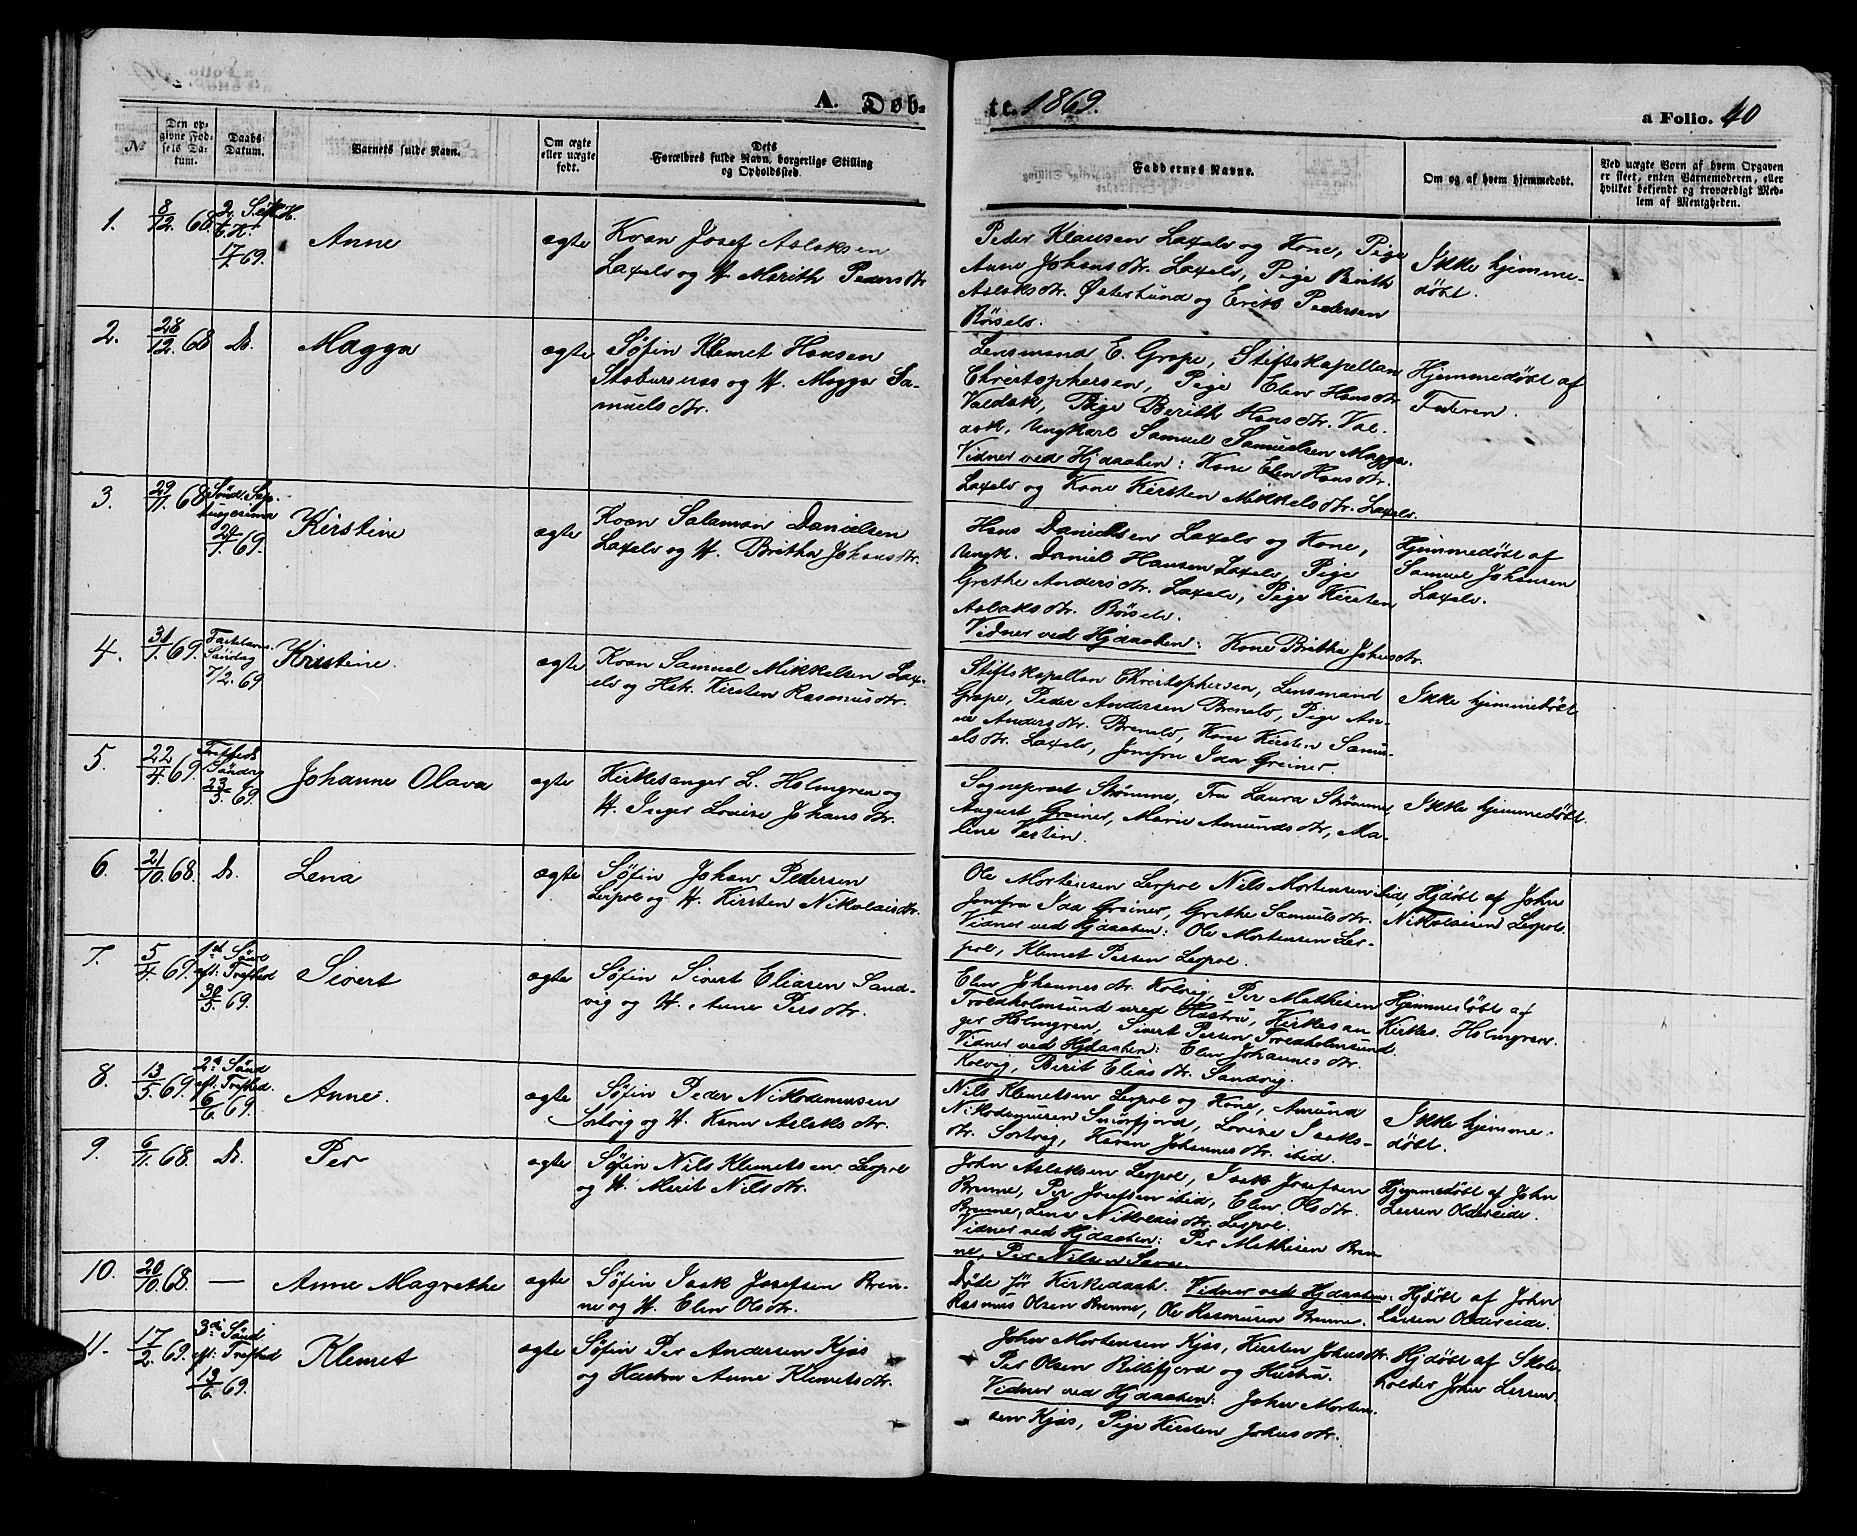 A. Døb-
te. 1869.
a Folio. 40
№
Den op-
givne Fød-
sels Da-
tum.
Daabs-
Datum.
Barnets fulde Navn.
Om ægte
eller uægte
født.
Dets
Forældres fulde Navn, borgerlige Stilling
og Opholdssted.
Faddernes Navne.
Om og af hvem hjemmedøbt.
Ved uægte Børn af hvem Opgaven
er skeet, enten Barnemoderen, eller
hvilket bekjendt og troværdigt Med-
lem af Menigheden.
1.
8/12. 68
2. S. eft. H.
17/1. 69.
Anne
ægte
Kvæn Josef Aslaksen
Laxelv og H. Marith Pedersdtr
Peder Klausen Laxelv og Kone, Pige
Anne Johansdtr. Laxelv, Pige Berith
Aslaksdtr. Østerlund og Erik Pedersen
Børselv.
Ikke hjemme-
døbt.
2.
28/12. 68
Do.
Magga
ægte
Søfin Klemet Hansen
Staburnæs og H. Magga Sa-
muelsdtr.
Lensmand E. Grape, Stiftskapellan
Christophersen, Pige Elen Hansdtr
Valdak, Pige Berith Hansdtr. Val-
dak, Ungkarl Samuel Samuelsen Magga.
Vidner ved Hjdaaben: Kone Elen Hansdtr.
Laxelv og Kone Kirsten Mikkelsdtr. Laxelv.
Hjemmedøbt af
Faderen.
3.
29/11. 68
Sønd. Sep-
tuagesima
24/1. 69.
Kirstine
ægte
Kvæn Salamon Danielsen
Laxelv og H. Britha Johansdtr.
Hans Danielsen Laxelv og Kone,
Ungk. Daniel Hansen Laxelv, Pige
Grethe Andersdtr. Laxelv, Pige Kirsten
Aslaksdtr. Børselv.
Vidner ved Hjdaaben: Kone Britha Johnsdtr.
Hjemmedøbt af
Samuel Johansen
Laxelv.
4.
31/1. 69.
Fastelavns
Søndag
7/2. 69
Kristine.
ægte
Kvæn Samuel Mikkelsen Lax-
elv og Hstr. Kirsten Rasmusdtr.
Stiftskapellan Christophersen, Lensmand
Grape, Peder Andersen Brenelv, Pige An-
ne Andersdtr. Brenelv, Kone Kirsten Samu-
elsdtr. Laxelv, Jomfru Ida Greiner.
Ikke hjemmedøbt
5.
22/4. 69.
Trefheds
Søndag
23/5. 69.
Johanne Olava
ægte
Kirkesanger L. Holmgren og
H. Inger Lovise Johansdtr.
Sogneprest Strømme, Fru Laura Strømme,
August Greiner, Marie Amundsdtr, Ma-
line Vestin.
Ikke hjemmedøbt.
6.
21/10. 68.
Do.
Lena
ægte
Søfin Johan Pedersen
Lerpol og H. Kirsten Nikolaisdtr.
Ole Mortensen Lerpol Nils Mortensen ibid,
Jomfru Ida Greiner, Grethe Samuelsdtr.
Vidner ved Hjdaaben: Ole Mortensen Ler-
pol, Klemet Persen Lerpol.
Hjdøbt af John
Nikolaisen Lerpol.
7.
5/4. 69.
1ste Sønd
eft: Trefhed
30/5. 69.
Sivert
ægte
Søfin Sivert Eliasen Sand-
vig og H. Anne Persdtr.
Elen Johannesdtr. Kolvig, Per Mathisen
Troldholmsund med Hustru, Kirkesan-
ger Holmgren, Sivert Persen Troldholmsund.
Vidner ved Hjdaaben: Elen Johannesdtr.
Kolvig, Berit Eliasdtr. Sandvig.
Hjemmedøbt af
Kirkes. Holmgren.
8.
13/5. 69.
2d Sønd
eft. Trefhed.
6/6. 69.
Anne.
ægte
Søfin Peder Nikodemussen
Sortvig og H. Karen Aslaksdtr.
Nils Klemetsen Lerpol og Kone, Amund
Nikodemusen Smørfjord, Lovise Isaks-
dtr. Sortvig, Karen Johannesdtr. ibid.
Ikke hjemme-
døbt.
9.
6/11. 68.
Do.
Per
ægte
Søfin Nils Klemetsen Lerpol
og H. Marit Nilsdtr.
John Aslaksen Lerpol, Isak Josefsen
Brenne, Per Josefsen ibid, Elen Olsdtr.
Brenne, Lena Nikolaisdtr. Lerpol.
Vidner ved Hjdaaben: Per Mathisen Bren-
ne, Per Nilsen Sara.
Hjemmedøbt af John
Lersen Oldereide.
10.
20/10. 68.
—
Anne Magrethe
ægte
Søfin Isak Josefsen Bren-
ne og H. Elen Olsdtr.
Døde før Kirkedaab. Vidner ved Hjdaaben:
Rasmus Olsen Brenne, Ole Rasmusen Brenne.
Hjdøbt af John
Lersen Oldereide.
11.
17/2. 69.
3die Sønd
eft: Trefhed
13/6. 69.
Klemet
ægte
Søfin Per Andersen Kjæs
og Hustru Anne Klemetsdtr.
John Mortensen Kjæs, Kirsten Johnsdtr.
Per Olsen Billefjord og Hustru.
Vidner ved Hjdaaben: John Morten-
sen Kjæs, Pige Kirsten Johnsdtr.
Hjdøbt af Skole-
holder John Lersen.